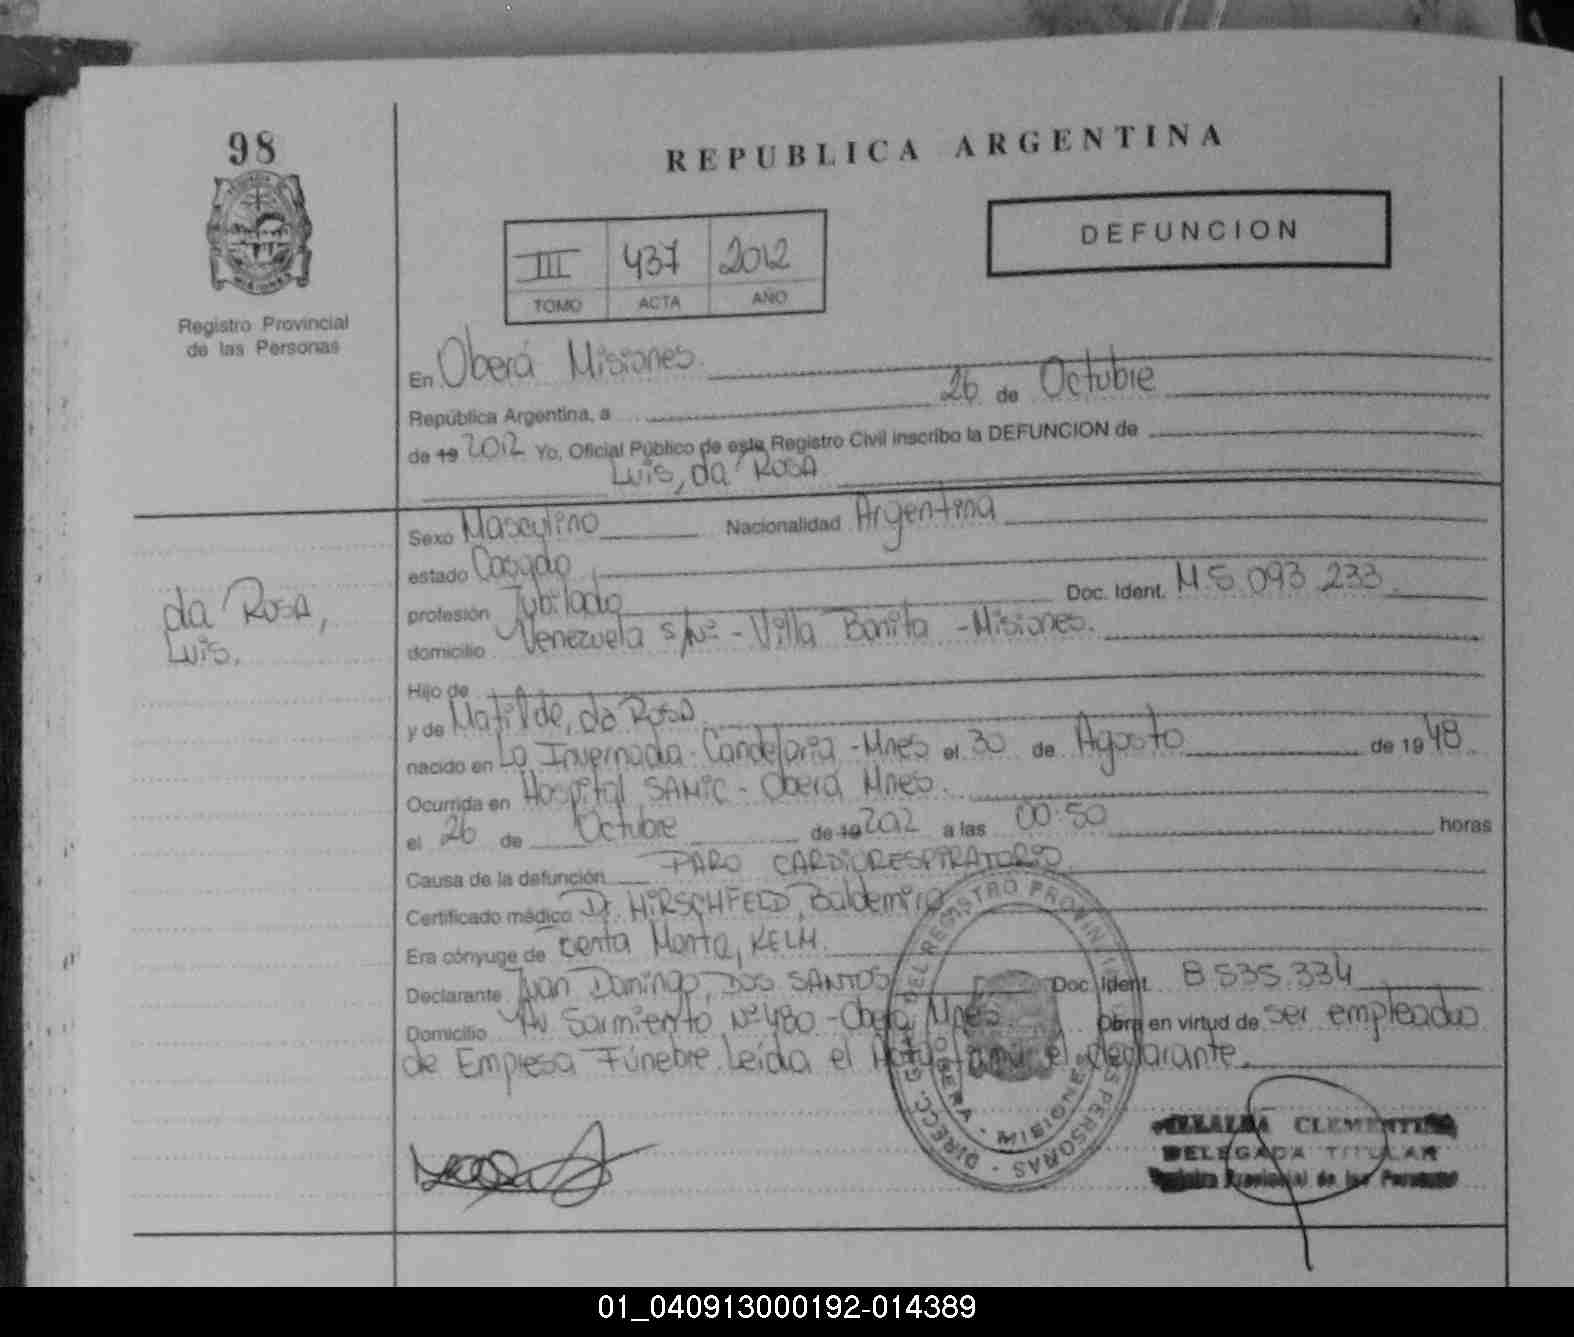 98
REPUBLICA ARGENTINA
DEFUNCION
III 437 2012
TOMO ACTA AÑO
Registro Provincial
de las Personas
En Oberá Misiones
República Argentina, a 26 de Octubre
de 19 2012 Yo, Oficial Público de este Registro Civil inscribo la DEFUNCION de
Luis, da Rosa
Sexo Masculino Nacionalidad Argentina
estado Casado
profesión Jubilado Doc. Ident. M 5.093.233
domicilio Venezuela s/Nº - Villa Bonita - Misiones.
da Rosa,
Luis.
Hijo de
y de Matilde, da Rosa
nacido en La Invernada - Candelaria - Mnes el 30 de Agosto de 1948
Ocurrida en Hospital SAMIC - Oberá Mnes.
el 26 de Octubre de 19 2012 a las 00:50 horas
Causa de la defunción PARO CARDIORESPIRATORIO
Certificado médico Dr. HIRSCHFELD, Baldemiro
Era cónyuge de Marta, KELM.
Declarante Juan Domingo, DOS SANTOS Doc. Ident. 8.535.334
Domicilio Av Sarmiento Nº 480 - Oberá, Mnes. Obra en virtud de ser empleado
de Empresa Fúnebre. Leída el Acta, el declarante.
DIRECC. GRAL. DEL REGISTRO PROVINCIAL DE LAS PERSONAS
OBERA - MISIONES
CLEMENTINA
DELEGADA TITULAR
Registro Provincial de las Personas
01_040913000192-014389